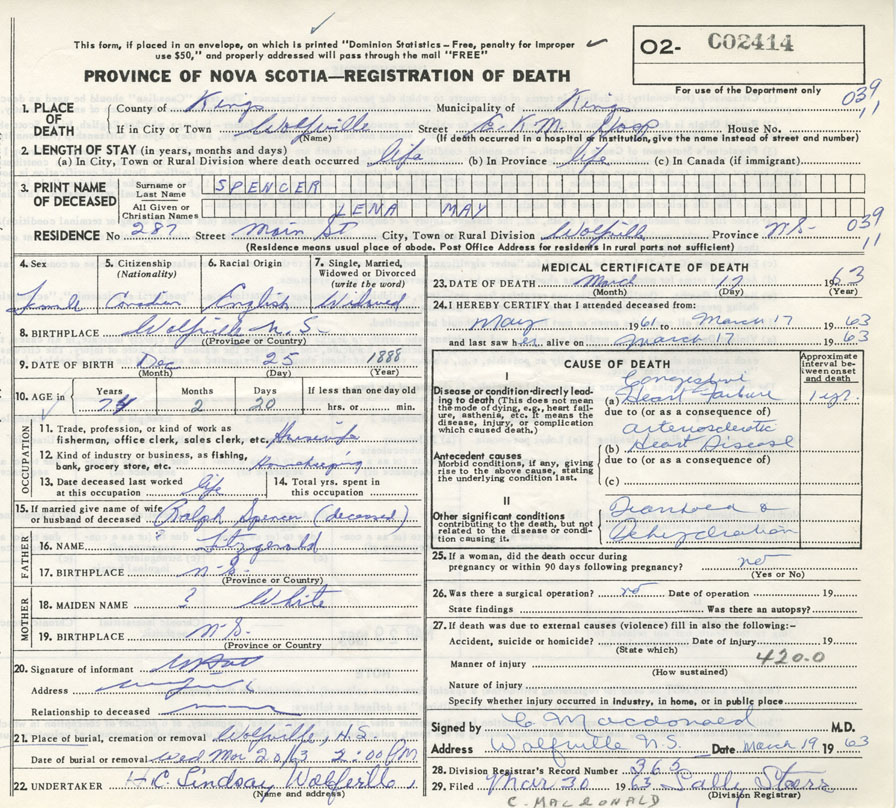 This form, if placed in an envelope, on which is printed "Dominion Statistics – Free, penalty for improper
use $50," and properly addressed will pass through the mail "FREE"
O2- C02414
PROVINCE OF NOVA SCOTIA—REGISTRATION OF DEATH
For use of the Department only
1. PLACE OF DEATH County of Kings Municipality of Kings 039
If in City or Town Wolfville Street E.K.M. Hosp House No. 11
(Name) (If death occurred in a hospital or institution, give the name instead of street and number)
2. LENGTH OF STAY (in years, months and days)
(a) In City, Town or Rural Division where death occurred life (b) In Province life (c) In Canada (if immigrant)
3. PRINT NAME OF DECEASED Surname or Last Name SPENCER
All Given or Christian Names LENA MAY
RESIDENCE No 287 Street Main St City, Town or Rural Division Wolfville Province N.S. 039
11
(Residence means usual place of abode. Post Office Address for residents in rural parts not sufficient)
4. Sex 5. Citizenship (Nationality) 6. Racial Origin 7. Single, Married, Widowed or Divorced (write the word)
Female Canadian English Widowed
8. BIRTHPLACE Wolfville N.S.
(Province or Country)
9. DATE OF BIRTH Dec 25 1888
(Month) (Day) (Year)
10. AGE in Years Months Days If less than one day old
74 2 20 hrs. or min.
OCCUPATION
11. Trade, profession, or kind of work as
fisherman, office clerk, sales clerk, etc. Housewife
12. Kind of industry or business, as fishing,
bank, grocery store, etc. Housekeeping
13. Date deceased last worked
at this occupation life
14. Total yrs. spent in
this occupation
15. If married give name of wife
or husband of deceased Ralph Spencer (deceased)
FATHER
16. NAME ? Fitzgerald
17. BIRTHPLACE N.S.
(Province or Country)
MOTHER
18. MAIDEN NAME ? White
19. BIRTHPLACE N.S.
(Province or Country
20. Signature of informant
Address
Relationship to deceased
21. Place of burial, cremation or removal Wolfville, N.S.
Date of burial or removal Wed Mar 20/63, 2:00 PM
22. UNDERTAKER H.C. Lindsay Wolfville
(Name and address)
MEDICAL CERTIFICATE OF DEATH
23. DATE OF DEATH March 17 1963
(Month) (Day) (Year)
24. I HEREBY CERTIFY that I attended deceased from:
May 1961 to March 17 1963
and last saw her alive on March 17 1963
CAUSE OF DEATH
Approximate interval between onset and death
I
Disease or condition directly leading
to death (This does not mean
the mode of dying, e.g., heart failure,
asthenia, etc. It means the
disease, injury, or complication
which caused death.)
Congestive
(a) Heart Failure 1 yr.
due to (or as a consequence of)
Arteriosclerotic
(b) Heart Disease
due to (or as a consequence of)
(c)
Antecedent causes
Morbid conditions, if any, giving
rise to the above cause, stating
the underlying condition last.
II
Other significant conditions
contributing to the death, but not
related to the disease or condition
causing it.
Diarrhoea &
Dehydration
25. If a woman, did the death occur during
pregnancy or within 90 days following pregnancy? no
(Yes or No)
26. Was there a surgical operation? no Date of operation 19
State findings Was there an autopsy?
27. If death was due to external causes (violence) fill in also the following:–
Accident, suicide or homicide? Date of injury 19
(State which)
420.0
Manner of injury
(How sustained)
Nature of injury
Specify whether injury occurred in industry, in home, or in public place
Signed by C Macdonald M.D.
Address Wolfville N.S. Date March 19 1963
28. Division Registrar's Record Number 363
29. Filed Mar 30 1963 Sally Starr
(Division Registrar)
C. MACDONALD